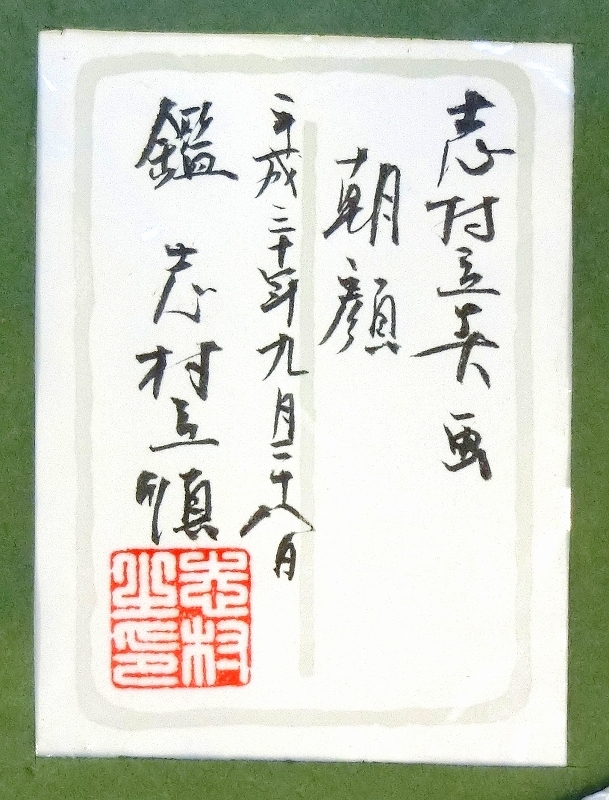 志村立美画
朝顔
平成二十年九月二十八日
鑑 志村立
志村